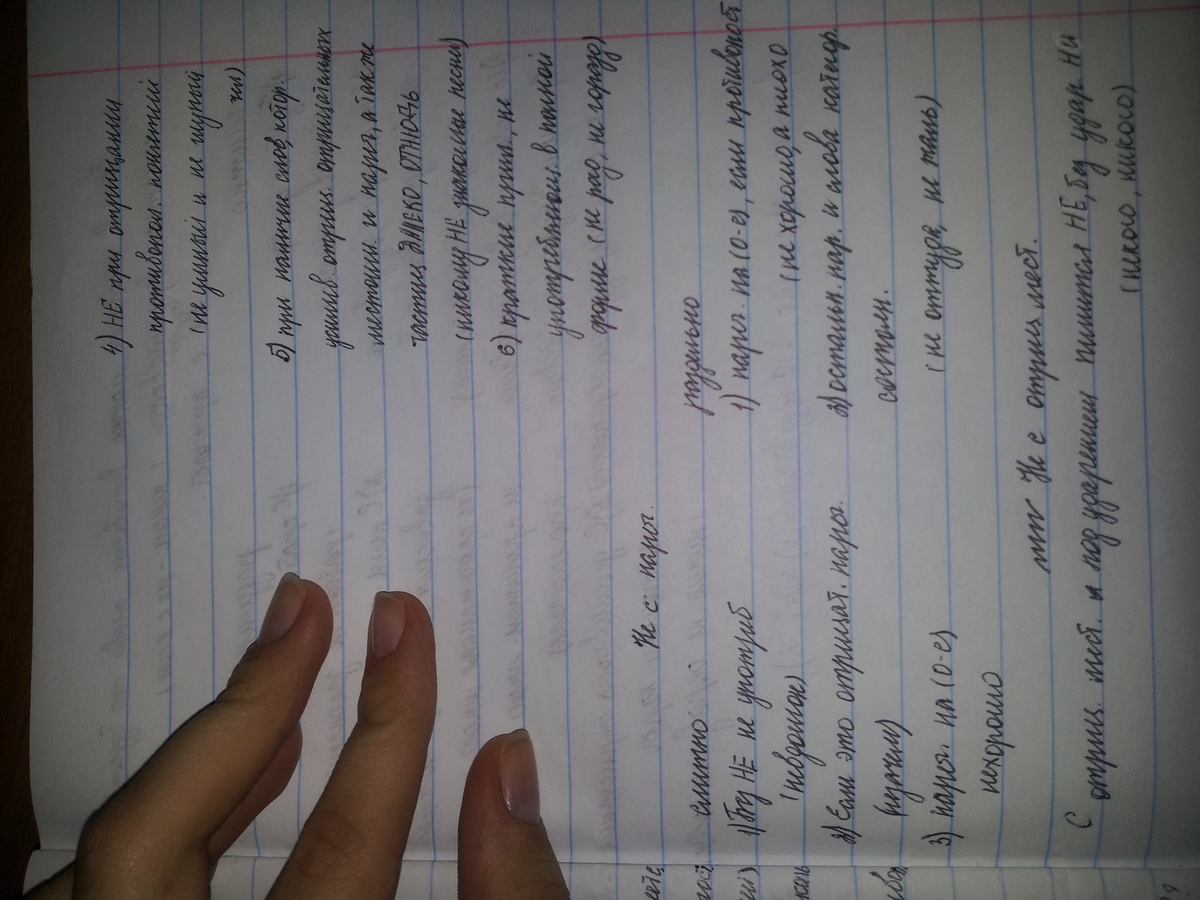 4) НЕ при отрицании
противопол. понятий
(не умный и не глупый
5) при наличие слов, котор.
усилив. отриц. отрицательных
местоим. и нареч., а также
частиц ДАЛЕКО, ОТНЮДЬ
(никому НЕ знакомые песни)
6) краткие прил., не
употребляющ. в полной
форме (не рад, не горазд)
Не с нареч.
слитно
1) без НЕ не употриб
(невдомек)
2) Если это отрицат. нареч.
(нужели)
3) нареч. на (о-е)
нехорошо
раздельно
1) нареч. на (о-е), если противопост
(не хорошо, а плохо
2) остальн. нар. и слова категор.
состоян.
(не оттуда, не жаль)
Не с отриц. мест.
С отриц. мест. и под ударением пишится НЕ, без удар. Ни
(некого, никого)